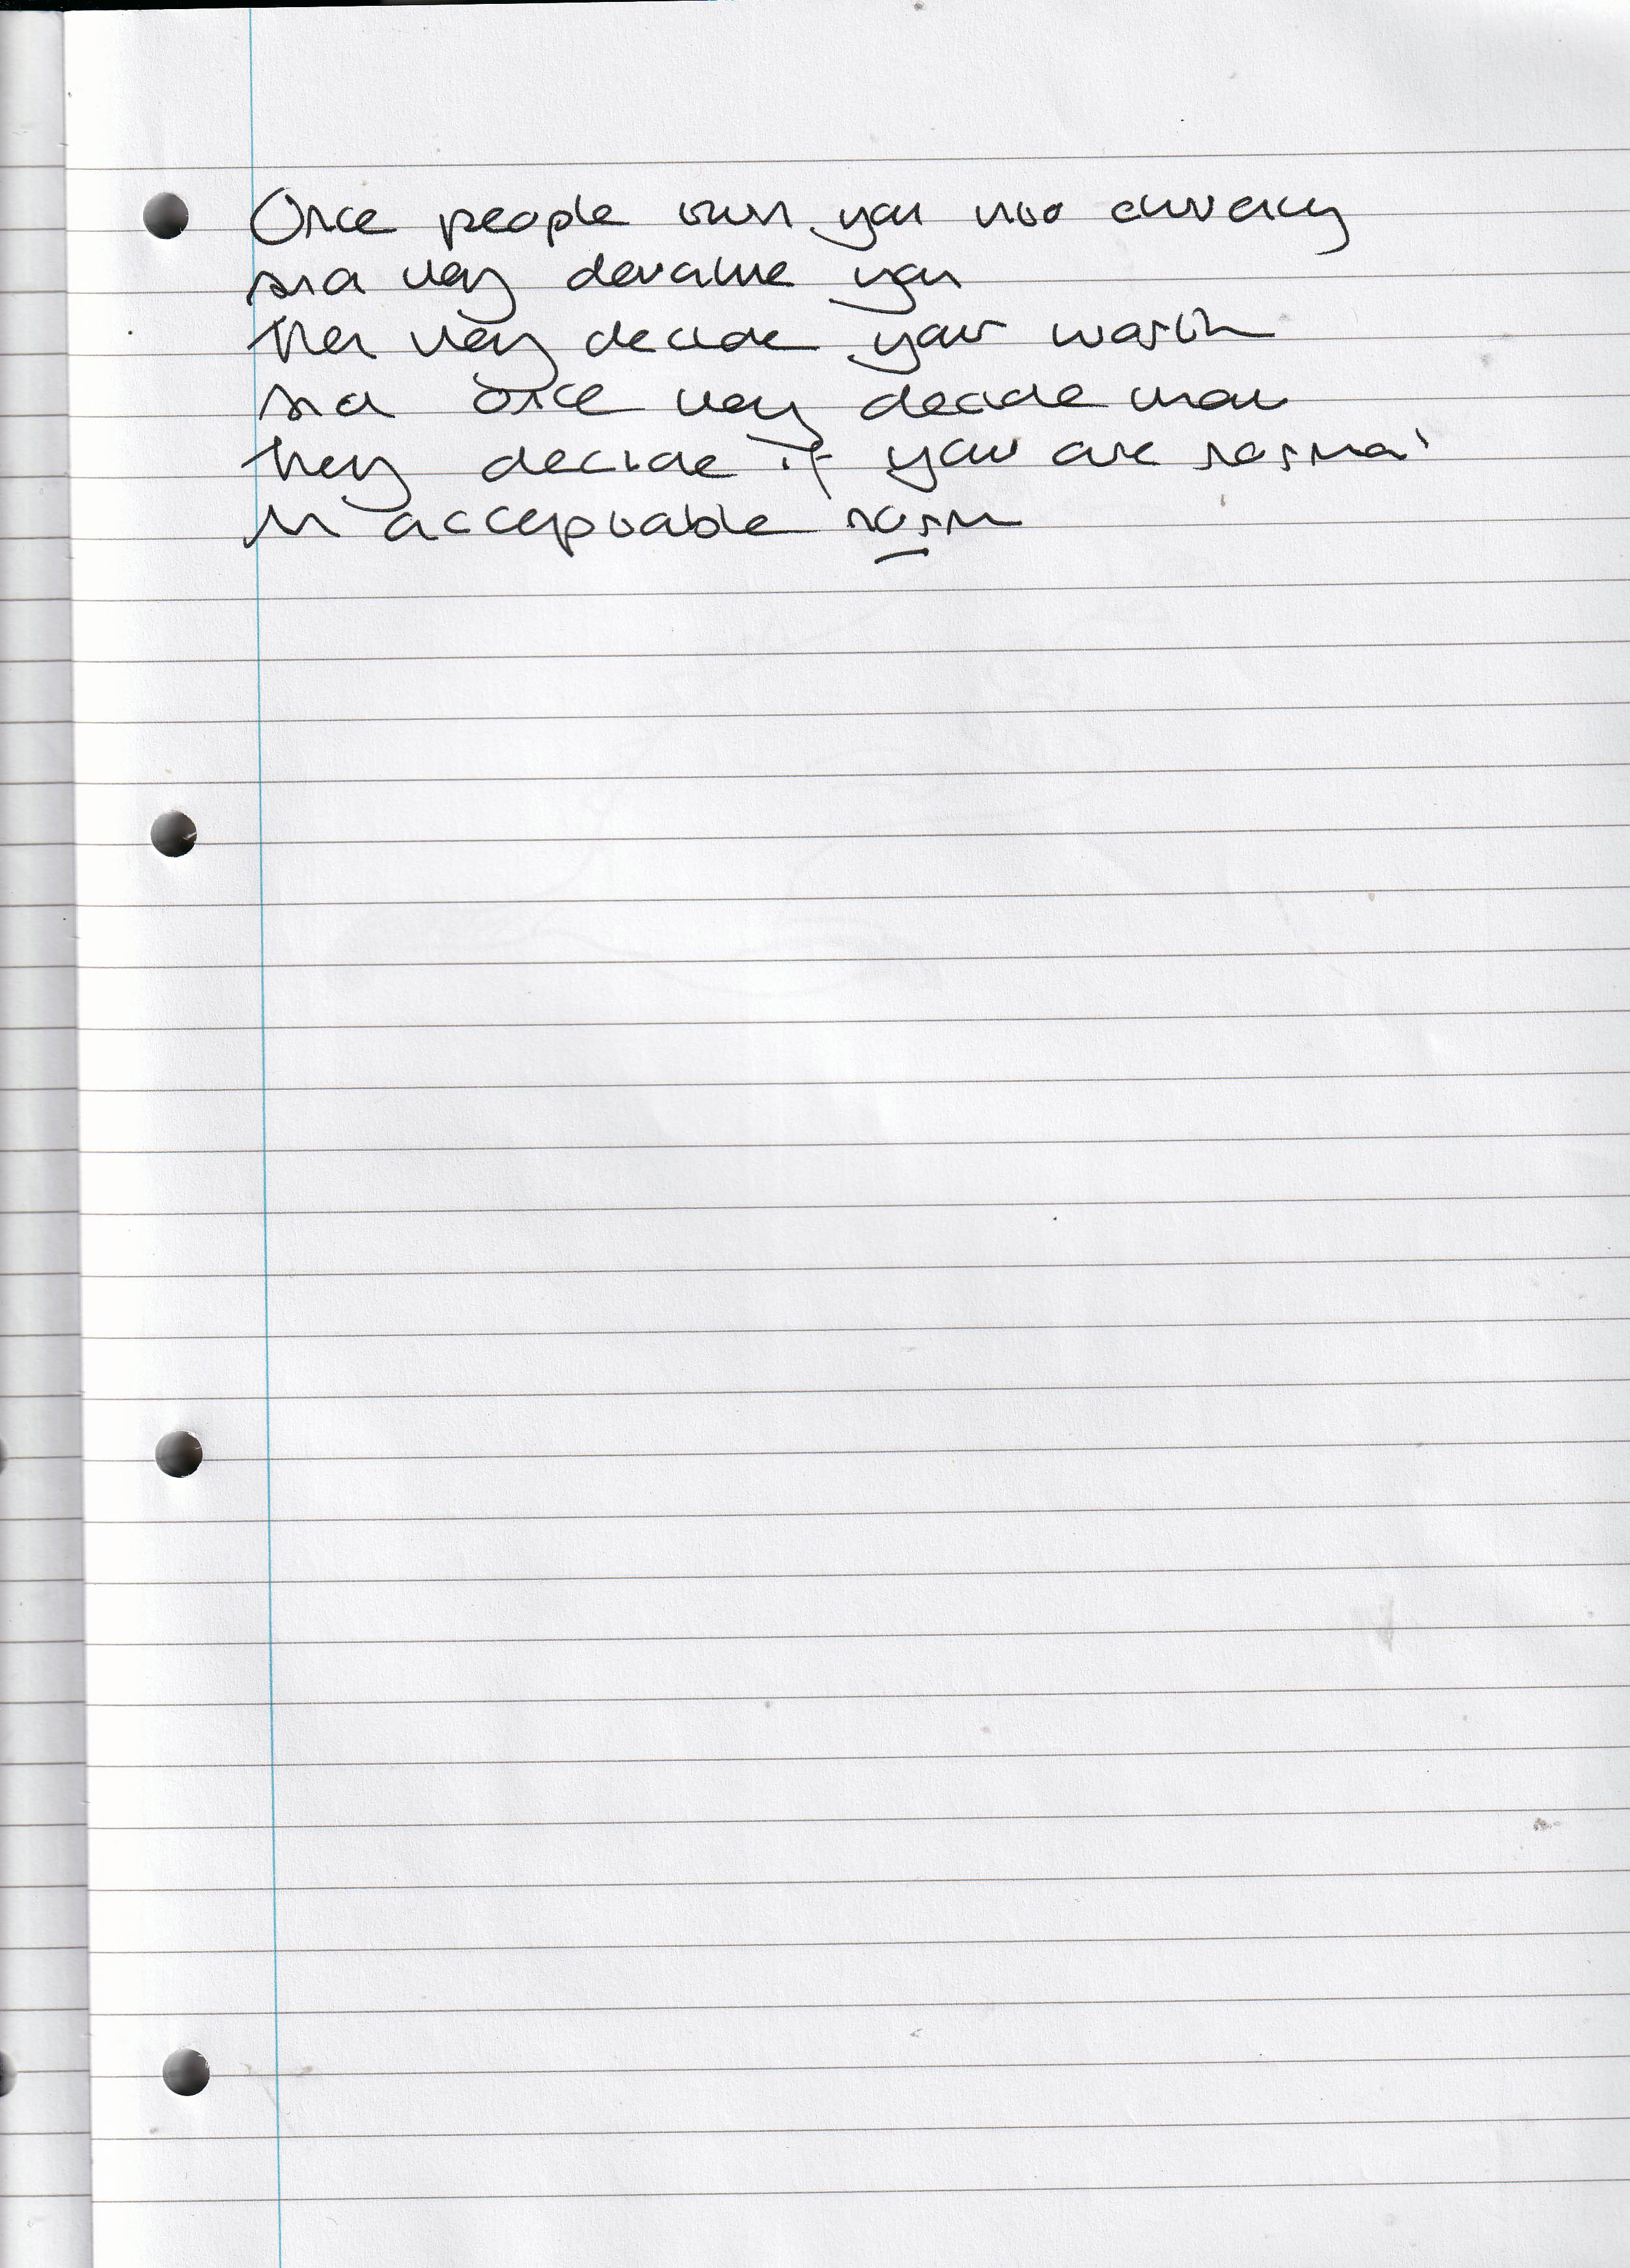 Once people turn you into currency
and they devalue you
then they decide your worth
and once they decide that
they decide if you are normal
in acceptable norm